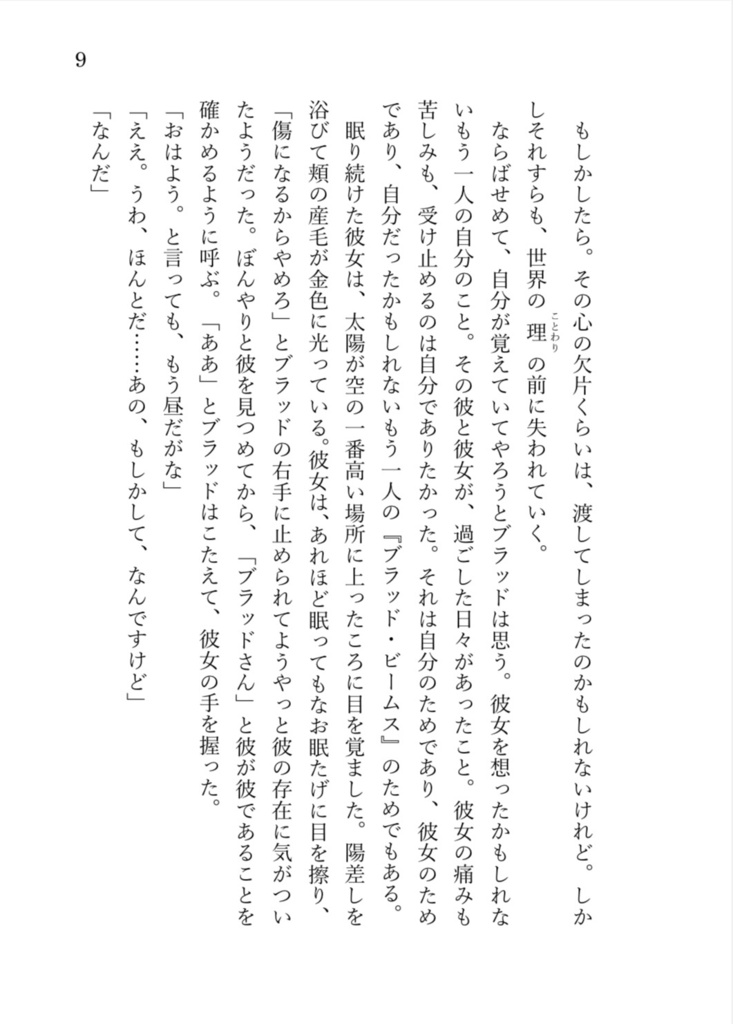 9
もしかしたら。その心の欠片くらいは、渡してしまったのかもしれないけれど。しか
しそれすらも、世界の理の前に失われていく。
ことわり
ならばせめて、自分が覚えていてやろうとブラッドは思う。彼女を想ったかもしれな
いもう一人の自分のこと。その彼と彼女が、過ごした日々があったこと。彼女の痛みも
苦しみも、受け止めるのは自分でありたかった。それは自分のためであり、彼女のため
であり、自分だったかもしれないもう一人の『ブラッド・ビームス』のためでもある。
眠り続けた彼女は、太陽が空の一番高い場所に上ったころに目を覚ました。陽差しを
浴びて頬の産毛が金色に光っている。彼女は、あれほど眠ってもなお眠たげに目を擦り、
「傷になるからやめろ」とブラッドの右手に止められてようやっと彼の存在に気がつい
たようだった。ぼんやりと彼を見つめてから、「ブラッドさん」と彼が彼であることを
確かめるように呼ぶ。「ああ」とブラッドはこたえて、彼女の手を握った。
「おはよう。と言っても、もう昼だがな」
「ええ。うわ、ほんとだ……あの、もしかして、なんですけど」
「なんだ」